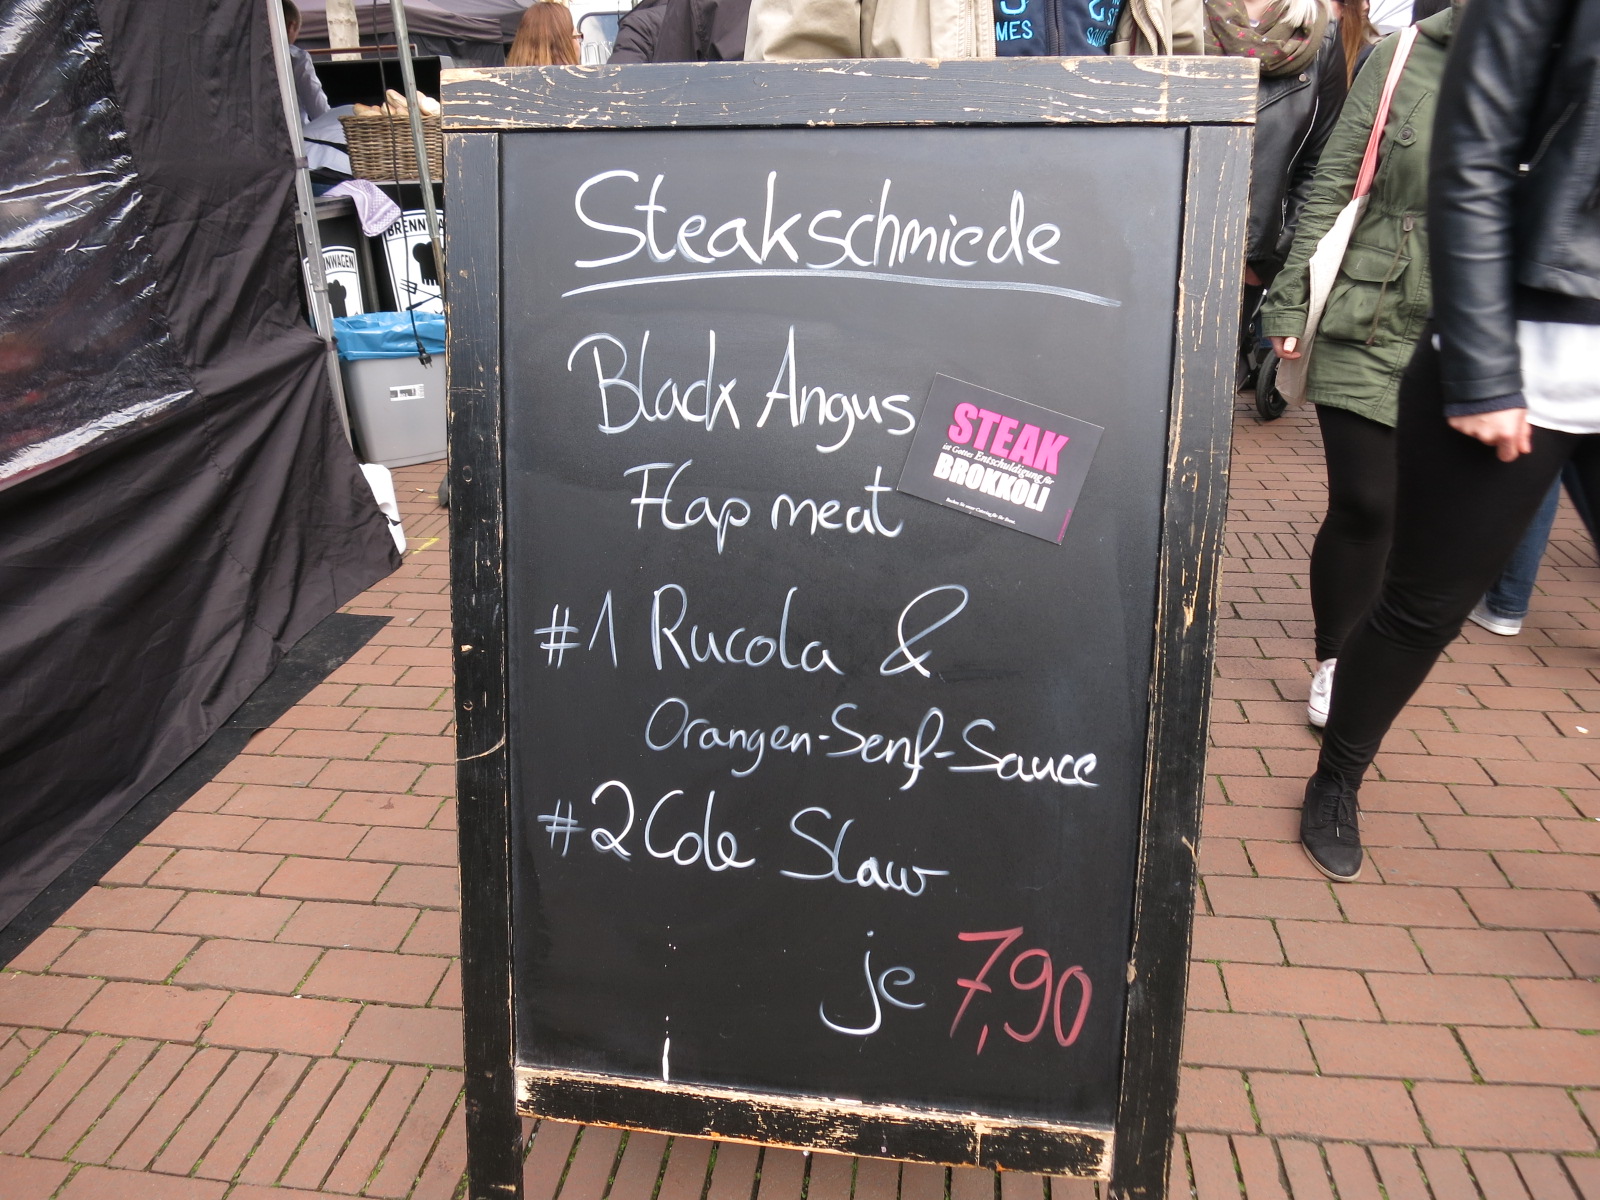 MES
Steakschmiede
Black Angus
Flap meat
STEAK
ist Gottes Entschuldigung für
BROKKOLI
#1 Rucola &
Orangen-Senf-Sauce
#2 Cole Slaw
je 7,90